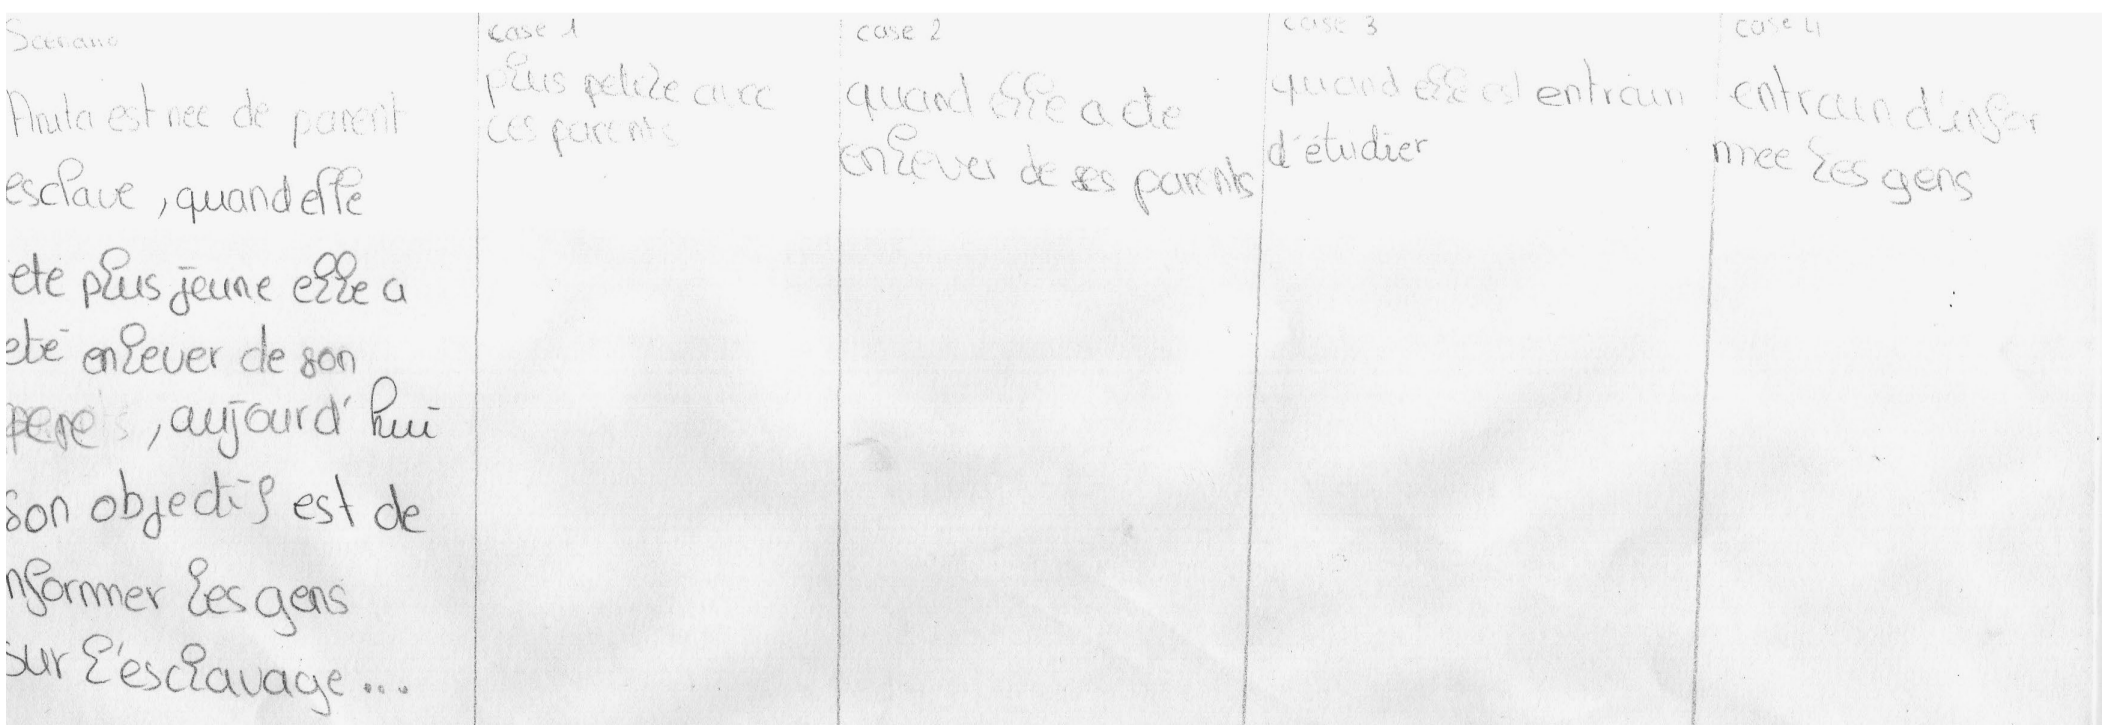 Scenario
Anita est nee de parent
esclave, quand elle
ete plus jeune elle a
eté enlever de son
pere, aujourd'hui
son objectif est de
nformer les gens
sur l'esclavage...
case 1
plus petite avec
ces parents
case 2
quand elle a ete
enlever de ses parents
case 3
quand elle est entrain
d'étudier
case 4
entrain d'infor
mee les gens